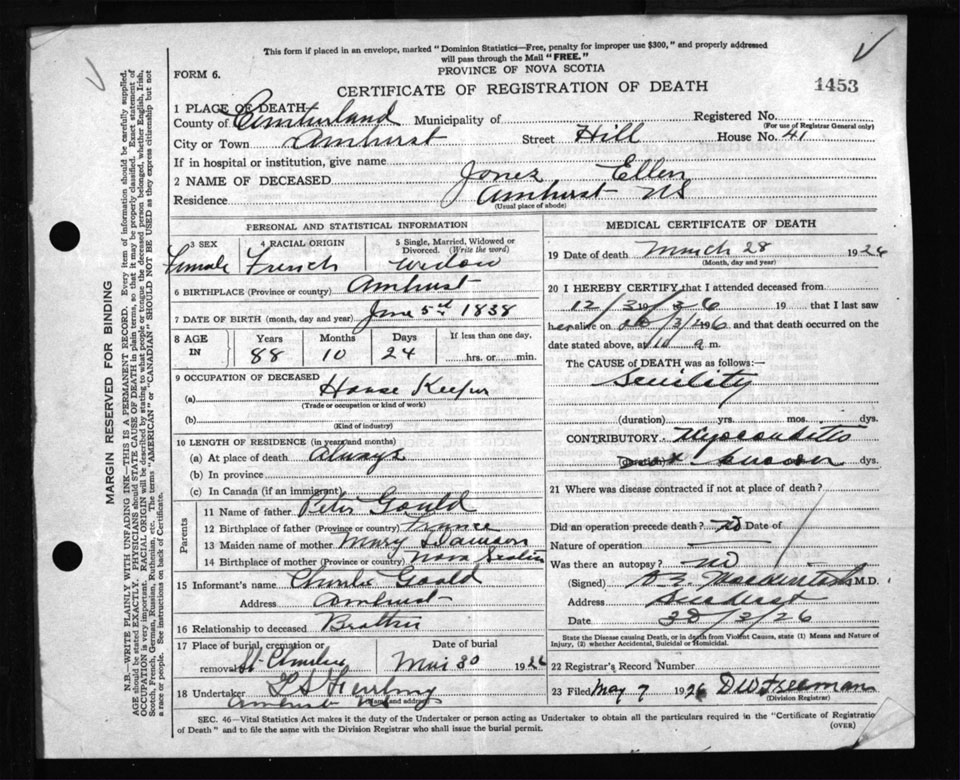 This form if placed in an envelope, marked "Dominion Statistics—Free, penalty for improper use $300," and properly addressed
will pass through the Mail "FREE."
FORM 6.
PROVINCE OF NOVA SCOTIA
CERTIFICATE OF REGISTRATION OF DEATH
1453
1 PLACE OF DEATH
County of Cumberland Municipality of Registered No.
(For use of Registrar General only)
City or Town Amhurst Street Hill House No. 41
If in hospital or institution, give name
2 NAME OF DECEASED Jones Ellen
Residence Amhurst NS
(Usual place of abode)
PERSONAL AND STATISTICAL INFORMATION
3 SEX Female
4 RACIAL ORIGIN French
5 Single, Married, Widowed or Divorced. (Write the word) Widow
6 BIRTHPLACE (Province or country) Amhurst
7 DATE OF BIRTH (month, day and year) June 5 1838
8 AGE IN Years Months Days If less than one day,
88 10 24 hrs. or min.
9 OCCUPATION OF DECEASED
(a) House Keeper
(Trade or occupation or kind of work)
(b)
(Kind of industry)
10 LENGTH OF RESIDENCE (in years and months)
(a) At place of death Always
(b) In province
(c) In Canada (if an immigrant)
Parents
11 Name of father Peter Gould
12 Birthplace of father (Province or country) France
13 Maiden name of mother Mary Dawson
14 Birthplace of mother (Province or country) Nova Scotia
15 Informant's name Charlie Goald
Address Amhurst
16 Relationship to deceased Brother
17 Place of burial, cremation or removal St Charles Date of burial Mar 30 1926
18 Undertaker
(Name and address)
MEDICAL CERTIFICATE OF DEATH
19 Date of death March 28 1926
(Month, day and year)
20 I HEREBY CERTIFY that I attended deceased from
12/3 19 /26 19 that I last saw
her alive on and that death occurred on
date stated above, at 10 a m.
The CAUSE OF DEATH was as follows:
Senility
(duration) yrs. mos. dys.
CONTRIBUTORY Myocarditis
(duration) dys.
21 Where was disease contracted if not at place of death?
Did an operation precede death? no Date of
Nature of operation
Was there an autopsy? no
(Signed) M.D.
Address
Date 28/3/26
State the Disease causing Death, or in death from Violent Causes, state (1) Means and Nature of
Injury, (2) whether Accidental, Suicidal or Homicidal.
22 Registrar's Record Number
23 Filed May 7 1926 DW Freeman
(Division Registrar)
SEC. 46—Vital Statistics Act makes it the duty of the Undertaker or person acting as Undertaker to obtain all the particulars required in the "Certificate of Registratio
of Death" and to file the same with the Division Registrar who shall issue the burial permit.
(OVER)
MARGIN RESERVED FOR BINDING
N.B.—WRITE PLAINLY WITH UNFADING INK—THIS IS A PERMANENT RECORD. Every item of information should be carefully supplied.
AGE should be stated EXACTLY. PHYSICIANS should STATE CAUSE OF DEATH in plain terms, so that it may be properly classified. Exact statement of
OCCUPATION is very important. RACIAL ORIGIN will be described by stating to what people or tongue the deceased person belonged, whether English, Irish,
Scotch, French, German, Russian, Ruthenian, etc. The terms "AMERICAN" or "CANADIAN" SHOULD NOT BE USED as they express citizenship but not
a race or people. See instructions on back of Certificate.